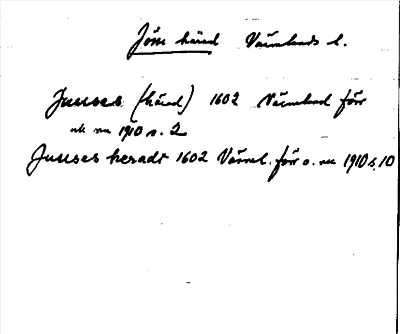 Jöss härad Värmlands l.
Jusses (härad) 1602 Värmland förr
och nu 1910 s. 2
Jusses heradt 1602 Värml. förr o. nu 1910 s. 10